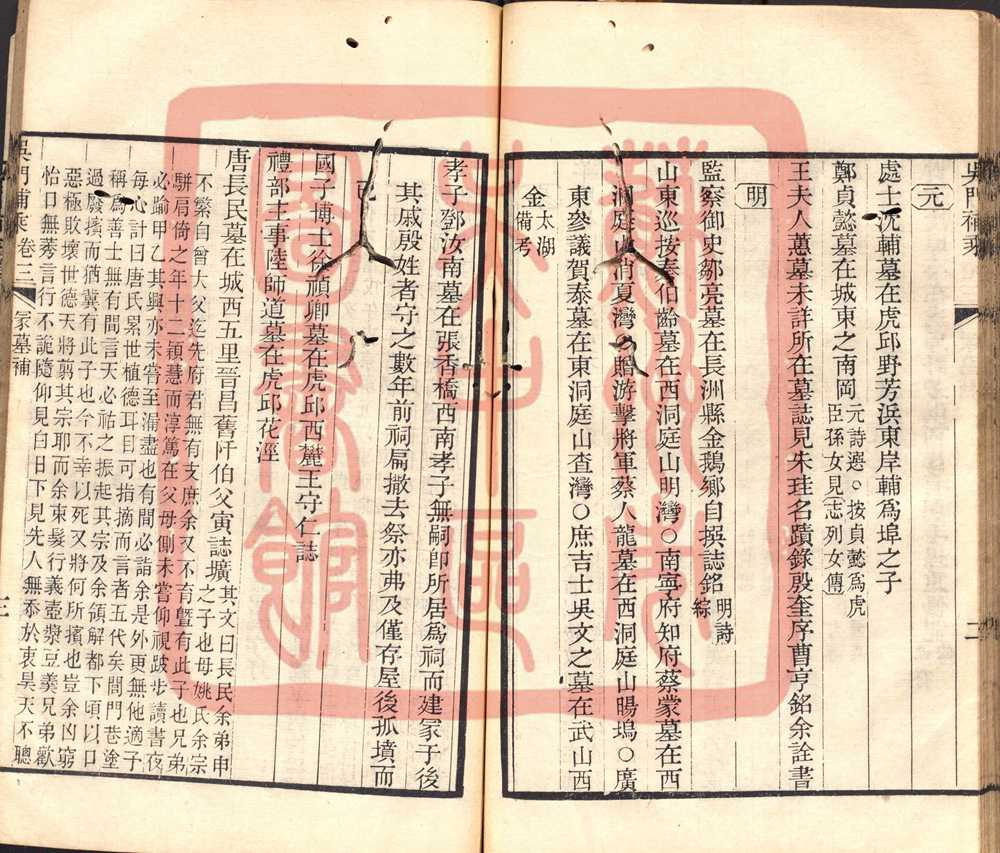 吳門補乘
二
元
處士沈輔墓在虎邱野芳浜東岸輔爲埠之子
鄭貞懿墓在城東之南岡元詩選○按貞懿爲虎
臣孫女見志列女傳
王夫人蕙墓未詳所在墓誌見朱珪名蹟錄殷奎序曹亨銘余詮書
明
監察御史鄒亮墓在長洲縣金鵝鄉自撰誌銘明詩
綜
山東巡按秦伯齡墓在西洞庭山明灣○南寧府知府蔡蒙墓在西
洞庭山消夏灣○贈游擊將軍蔡人龍墓在西洞庭山暘塢○廣
東參議賀泰墓在東洞庭山査灣○庶吉士吳文之墓在武山西
金太湖
備考
孝子鄧汝南墓在張香橋西南孝子無嗣卽所居爲祠而建冢于後
其戚殷姓者守之數年前祠扁撤去祭亦弗及僅存屋後孤墳而
已
國子博士徐禎卿墓在虎邱西麓王守仁誌
禮部主事陸師道墓在虎邱花涇
唐長民墓在城西五里晉昌舊阡伯父寅誌壙其文曰長民余弟申
之子也母姚氏余宗
不繁自曾大父迄先府君無有支庶余又不育曁有此子也兄弟
駢肩倚之年十二穎慧而淳篤在父母側未嘗仰視跛步讀書夜
必踰甲乙其興亦未嘗至漏盡也有間必詣余是外更無他適子
每心計曰唐氏累世植德耳目可指摘而言者五代矣閭門巷塗
稱爲善士無有間言天必祐之振起其宗及余領解都下頃以口
過廢擯而猶冀有此子也今不幸以死又將何所擯也豈余凶窮
惡極敗壞世德天將翦其宗耶而余束髮行義壺漿豆羹兄弟歡
怡口無莠言行不詭隨仰見白日下見先人無忝於衷昊天不聰
吳門補乘卷三
冢墓補
三